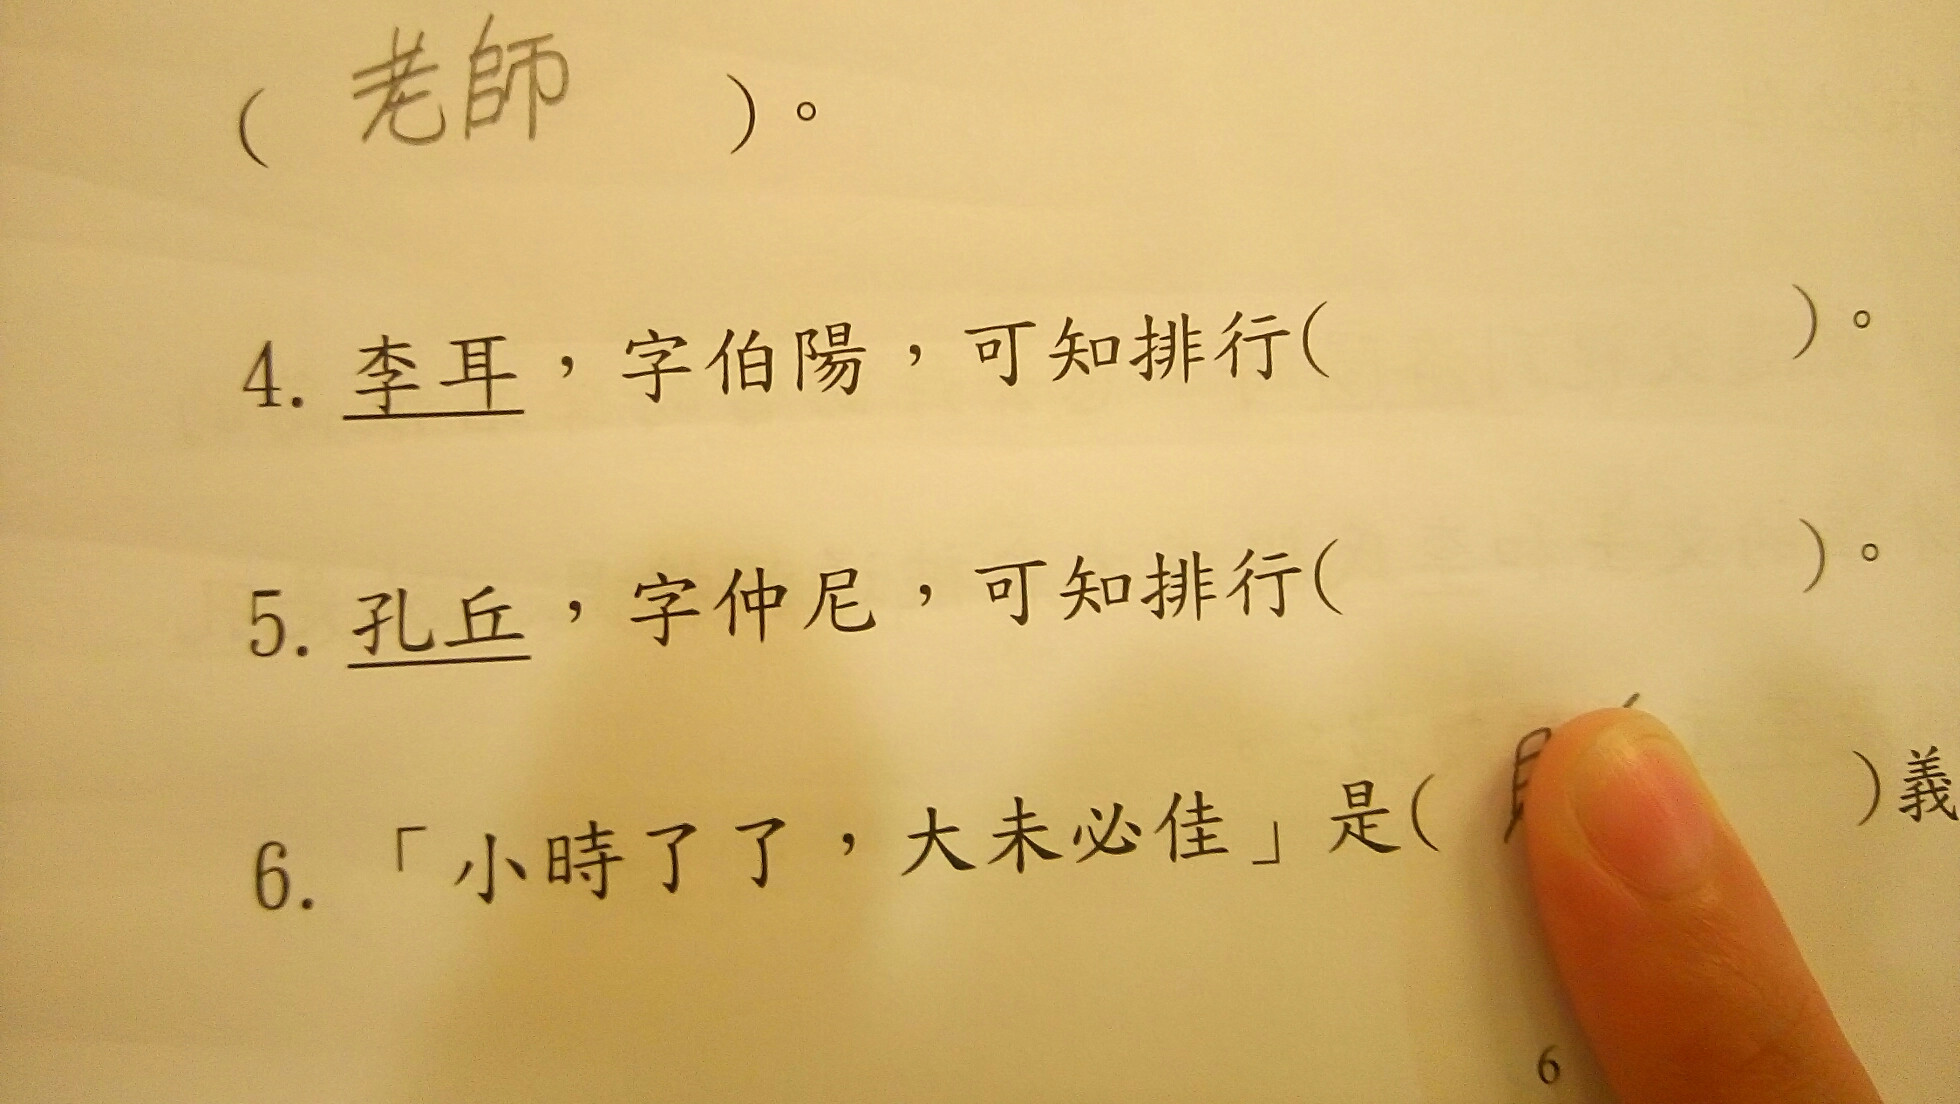 ( 老師 )。
4. 李耳，字伯陽，可知排行( )。
5. 孔丘，字仲尼，可知排行( )。
6. 「小時了了，大未必佳」是( )義
6